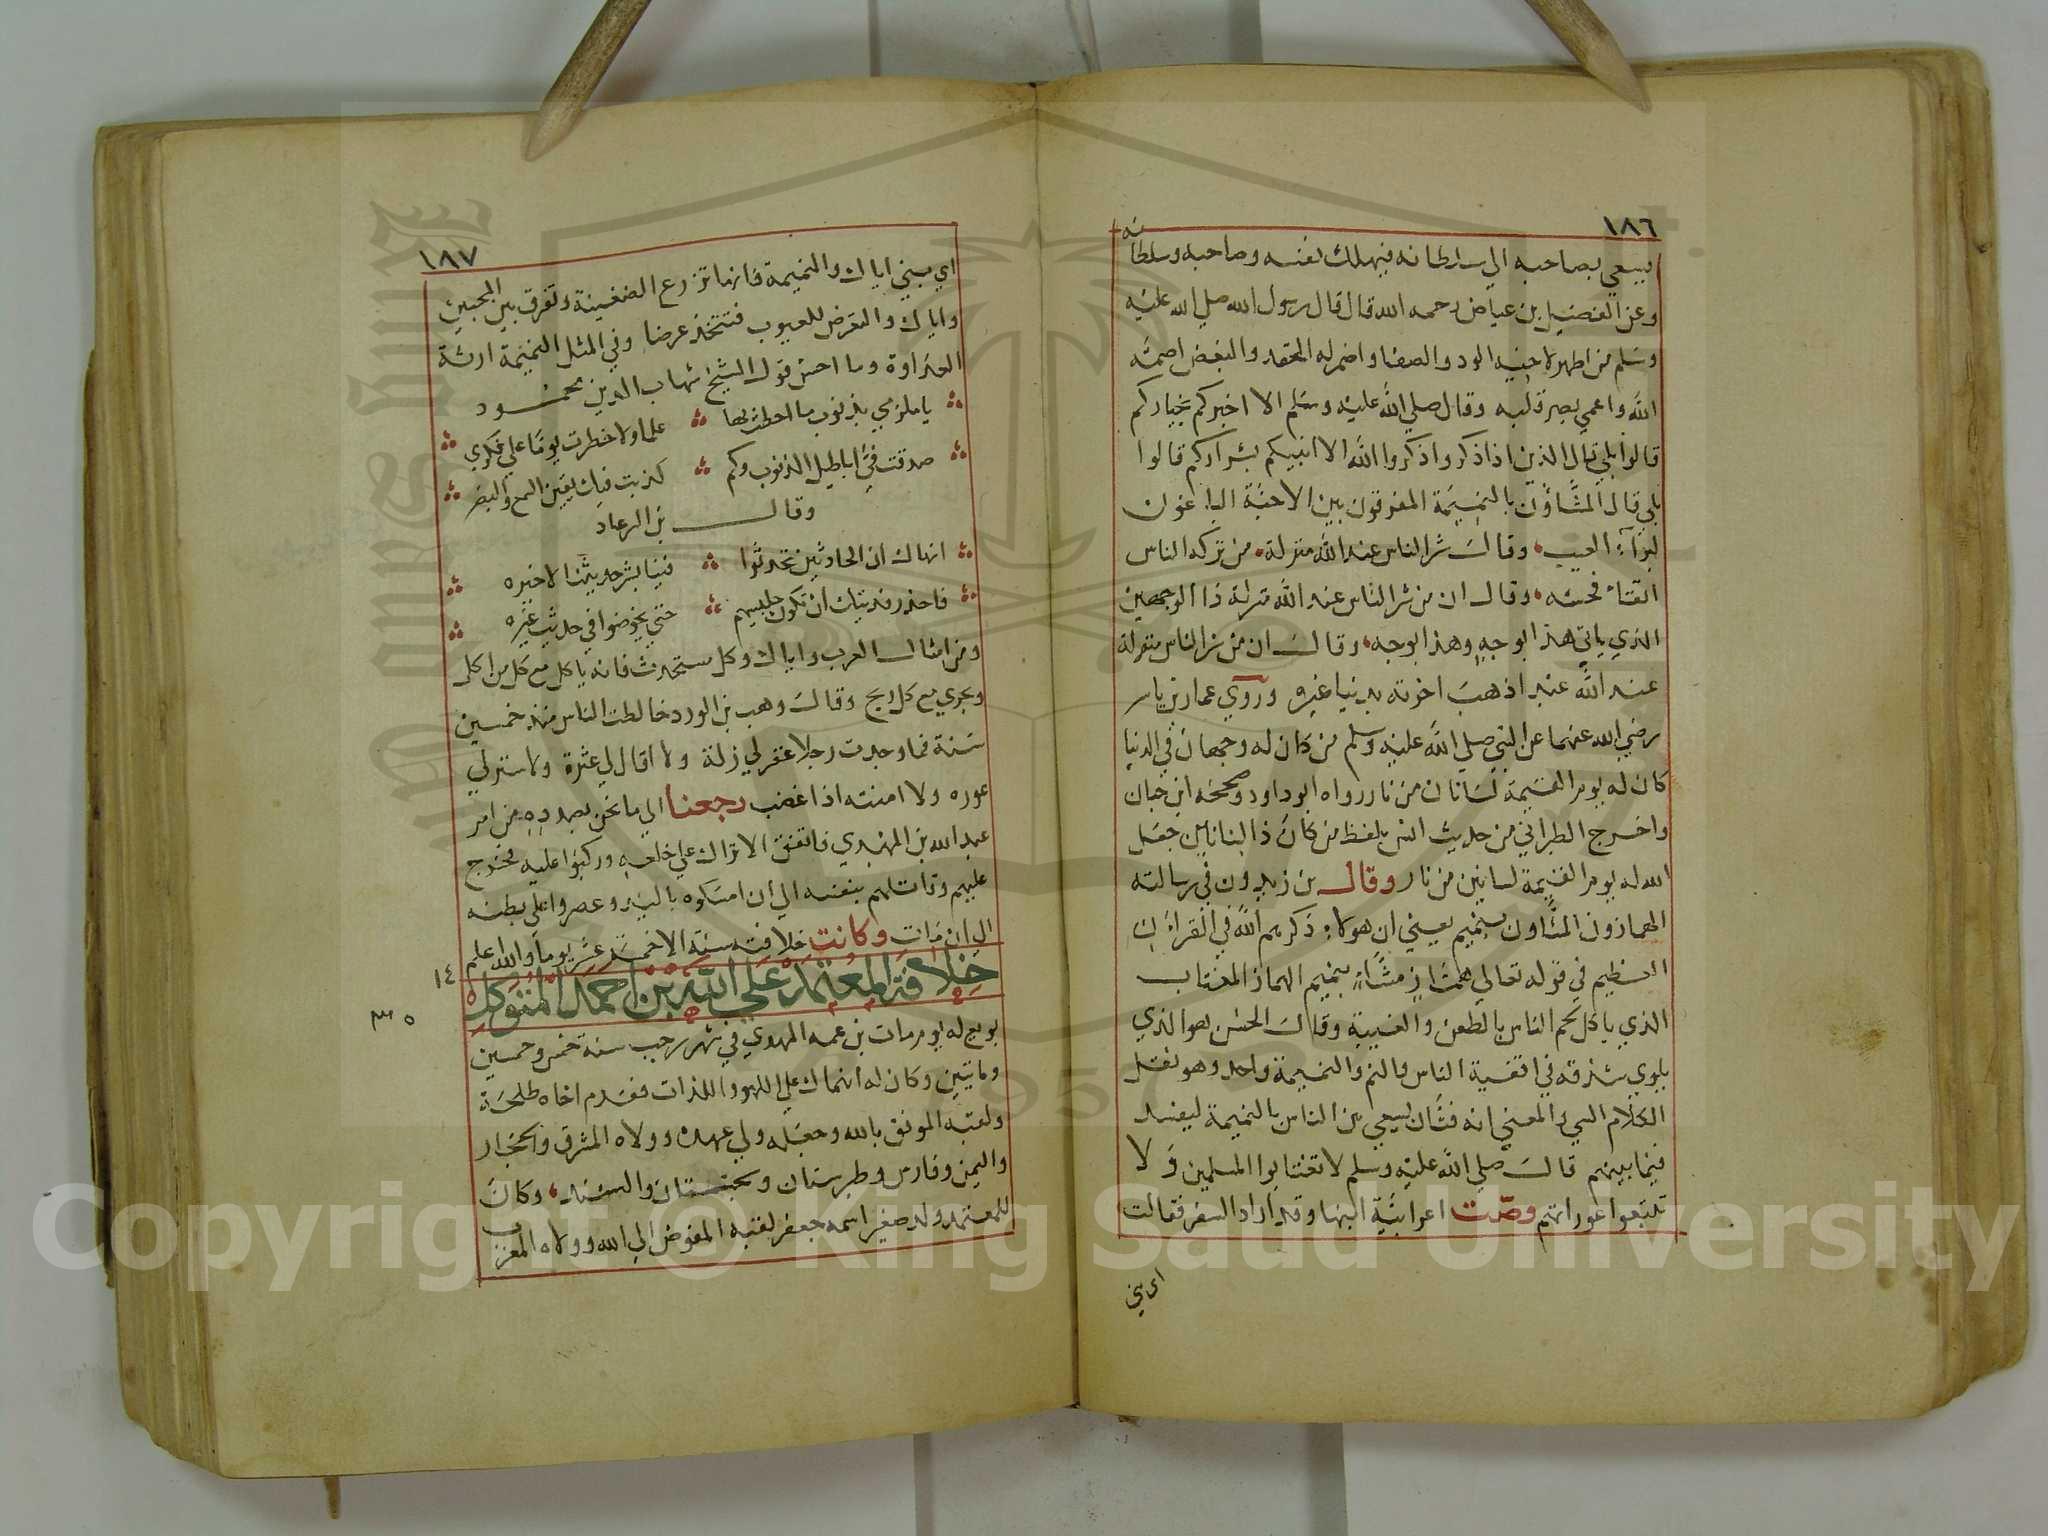 ١٨٦
يسعي بصاحبه الي سلطانه فيهلك نفسه وصاحبه وسلطانه
وعن الفضيل بن عياض رحمه الله قال قال رسول الله صلي الله عليه
وسلم من اظهر لاخيه الود والصفا واضمر له الحقد والبغض اصمه
الله واعمي بصر قلبه وقال صلي الله عليه وسلم الا اخبركم بخياركم
قالوا بلي قال الذين اذا ذكروا ذكروا الله الا انبيكم بشراركم قالوا
بلي قال المشاؤن بالنميمة المفرقون بين الاحبة الباغون
لبرآء العيب وقال شر الناس عند الله منزلة من تركه الناس
اتقاء فحشه وقال ان من شر الناس عند الله منزلة ذا الوجهين
الذي ياتي هذا بوجه وهذا بوجه وقال ان من شر الناس منزلة
عند الله عبد اذهب اخرته بدنيا غيره وروي عمار بن ياسر
رضي الله عنهما عن النبي صلي الله عليه وسلم من كان له وجهان في الدنيا
كان له يوم القيمة لسانان من نار رواه ابو داود وصححه ابن حبان
واخرج الطبراني من حديث انس بلفظ من كان ذا لسانين جعل
الله له يوم القيمة لسانين من نار وقال بن زيدون في رسالته
الهمازون المشاون بنميم يعني ان هولاء ذكرهم الله في القران
العظيم في قوله تعالي هماز مشاء بنميم الهماز المغتاب
الذي ياكل لحم الناس بالطعن والغيبة وقال الحسن هو الذي
يلوي شدقه في اقفية الناس والنم والنميمة واحد وهو نقل
الكلام السي والمعني انه فتان يسعي بين الناس بالنميمة ليفسد
فيما بينهم قال صلي الله عليه وسلم لا تغتابوا المسلمين ولا
تتبعوا عوراتهم وصّت اعرابية ابنها وقد اراد السفر فقالت
اي بني
١٨٧
اي بني اياك والنميمة فانها تزرع الضغينة وتفرق بين المحبين
واياك والتعرض للعيوب فتتخذ عرضا وفي المثل النميمة ارثة
العداوة وما احسن قول الشيخ شهاب الدين محمود
يا ملزمي بذنوب ما احطت بها علما ولا خطرت يوما علي فكري
صدقت في اباطيل الذنوب وكم كذبت فيك يقين السمع والبصر
وقال بن الرعاد
انهاك ان الحادثين تحدثوا فينا بشر حديثنا لا خيره
فاحذر فديتك ان تكون جليسهم حتي يخوضوا في حديث غيره
ومن امثال العرب واياك وكل مستحدث فانه ياكل مع كل من اكل
ويجري مع كل ريح وقال وهب بن الورد خالطت الناس منذ خمسين
سنة فما وجدت رجلا غفر لي زلة ولا اقال لي عثرة ولا ستر لي
عوره ولا امنته اذا غضب رجعنا الي ما نحن بصدده من امر
عبد الله بن المهتدي فاتفق الاتراك علي خلعه وركبوا عليه فخرج
عليهم وقاتلهم بنفسه الي ان امسكوه باليد وعصروا علي بطنه
الي ان مات وكانت خلافته سنة الا خمسة عشر يوما والله اعلم
١٤
خلافة المعتمد علي الله بن احمد المتوكل
بويع له يوم مات بن عمه المهدي في شهر رجب سنة خمس وخمسين
ومايتين وكان له انهماك علي اللهو واللذات فقدم اخاه طلحة
ولقبه الموفق بالله وجعله ولي عهده وولاه المشرق والحجاز
واليمن وفارس وطبرستان وسجستان والسند وكان
للمعتمد ولد صغير اسمه جعفر لقبه المفوض الي الله وولاه المغرب
Copyright © King Saud University